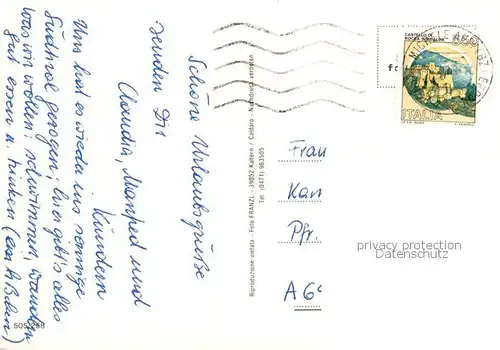 Schöne Urlaubsgrüße
senden Dir
Claudia, Manfred und
Kindern
Uns hat es wieder ins sonnige
Südtirol gezogen; hier gibt's alles
was wir wollen: schwimmen, wandern
gut essen u. trinken
505/268
Riproduzione vietata - Foto FRANZL - 39052 Kaltern / Caldaro - Nachdruck verboten
Tel. (0471) 963505
CASTELLO DI
ROCCA
650
ITALIA
Frau
Kan
Pfr.
A 6
privacy protection
Datenschutz